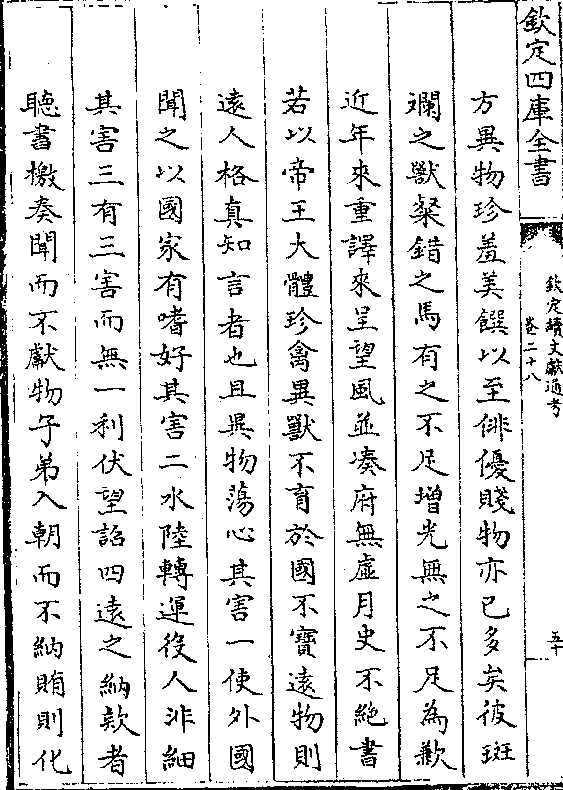 欽定四庫全書
欽定續文獻通考
卷二十八
五十
方異物珍羞美饌以至俳優賤物亦已多矣彼斑
斕之獸粲錯之馬有之不足增光無之不足為歉
近年來重譯來呈望風並凑府無虛月史不絕書
若以帝王大體珍禽異獸不育於國不寶遠物則
遠人格真知言者也且異物蕩心其害一使外國
聞之以國家有嗜好其害二水陸轉運役人非細
其害三有三害而無一利伏望詔四遠之納欵者
聽書檄奏聞而不獻物子弟入朝而不納賄則化